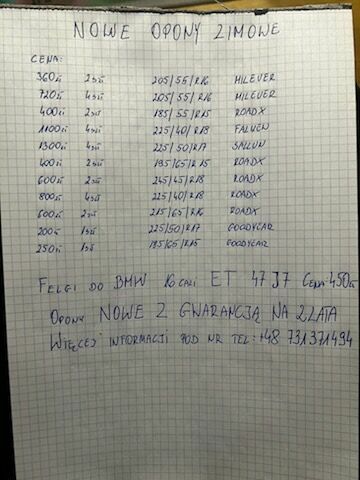 NOWE OPONY ZIMOWE
CENA:
360zł 2szt 205/55/R16 MILEVER
720zł 4szt 205/55/R16 MILEVER
400zł 2szt 185/55/R15 ROADX
1100zł 4szt 225/40/R18 FALKEN
1300zł 4szt 225/50/R17 SAILUN
400zł 2szt 195/65/R15 ROADX
600zł 2szt 245/45/R18 ROADX
800zł 4szt 225/40/R18 ROADX
600zł 2szt 215/65/R16 ROADX
200zł 1szt 225/50/R17 GOODYEAR
250zł 1szt 195/65/R15 GOODYEAR
FELGI DO BMW 16 CALI ET 47 J7 CENA 450zł
OPONY NOWE Z GWARANCJĄ NA 2 LATA
WIĘCEJ INFORMACJI POD NR TEL: +48 731371494